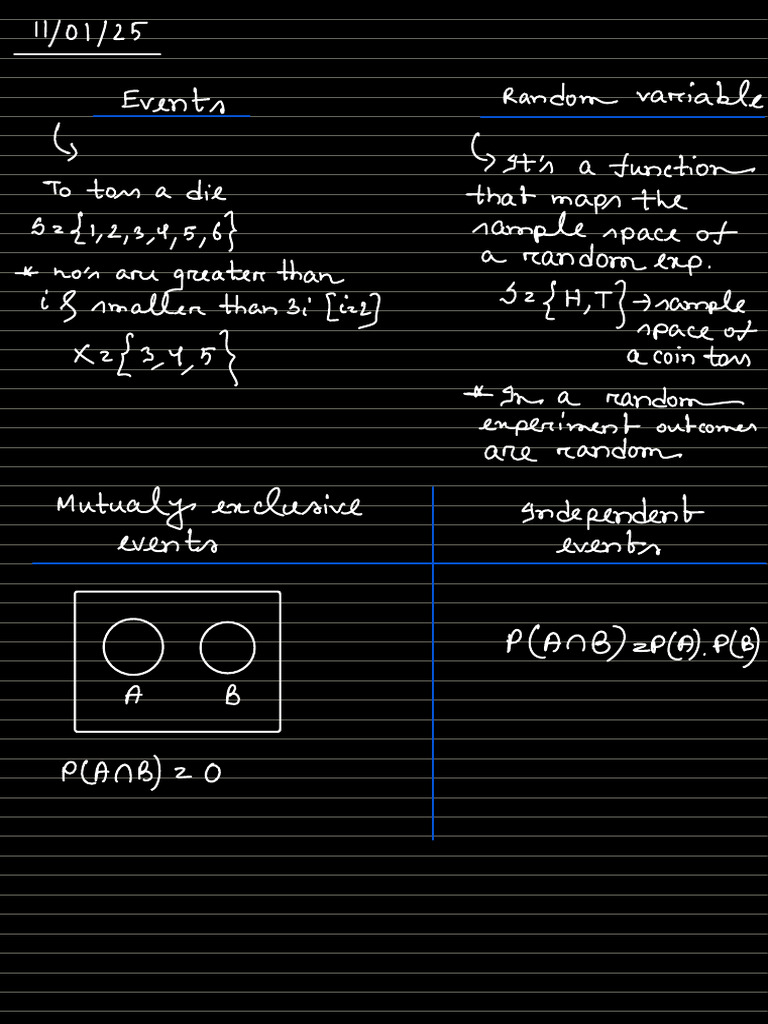 11/01/25
Events
To toss a die
S = {1, 2, 3, 4, 5, 6}
* no's are greater than
i & smaller than 3i [i=2]
X = {3, 4, 5}
Random variable
It's a function
that maps the
sample space of
a random exp.
S = {H, T} → sample
space of
a coin toss
* In a random
experiment outcomes
are random
Mutualy exclusive
events
A B
P(A∩B) = 0
Independent
events
P(A∩B) = P(A). P(B)